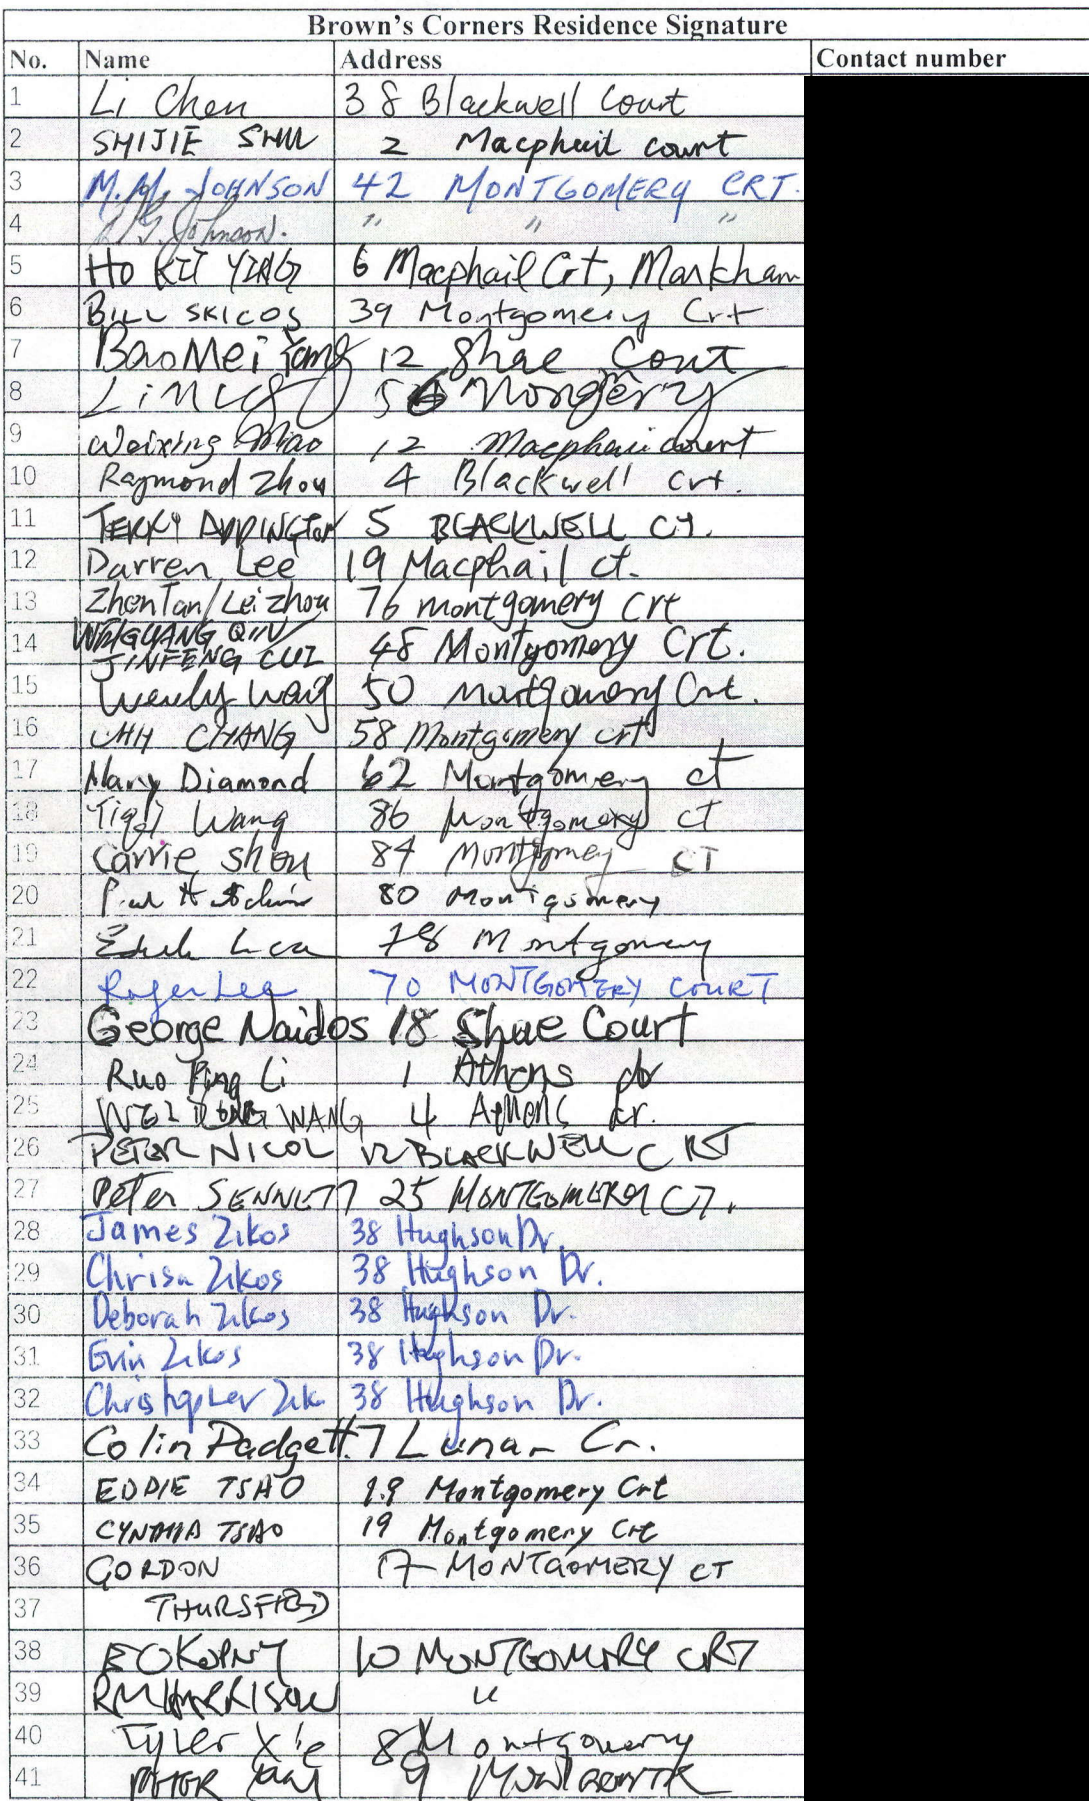 Brown's Corners Residence Signature
No. Name Address Contact number
1 Li Chen 38 Blackwell Court
2 SHIJIE 2 Macphail court
3 M.M. JOHNSON 42 MONTGOMERY CRT.
4 Johnson. " " "
5 HO KIT 6 Macphail Crt, Markham
6 BILL SKICOS 39 Montgomery Crt
7 BaoMei Yang 12 Shae Court
8
9 Weixing Miao 12 court
10 Raymond Zhou 4 Blackwell crt.
11 TERRY ADDINGTON 5 BLACKWELL CT.
12 Darren Lee 19 Macphail ct.
13 Zhen Tan/Lei zhou 76 montgomery Crt
14 QIN 48 Montgomery Crt.
JINFENG CUI
15 50 Montgomery Crt.
16 CHANG 58 Montgomery crt
17 Mary Diamond 62 Montgomery ct
18 Wang 86 Montgomery ct
19 Carrie Shou 84 CT
20 80
21 78 Montgomery
22 Roger Lee 70 MONTGOMERY COURT
23 George Naidos 18 Shae Court
24 Ruo Ping Li 1 Athens dr
25 WANG 4 dr.
26 PETER NICOL 12 BLACKWELL CRT
27 Peter SENNETT 25 MONTGOMERY CT.
28 James Zikos 38 Hughson Dr.
29 Chrisa Zikos 38 Hughson Dr.
30 Deborah Zikos 38 Hughson Dr.
31 Evin Zikos 38 Hughson Dr.
32 Christopher Zik 38 Hughson Dr.
33 Colin Padgett. 7 Lunar Cr.
34 EDDIE TSAO 19 Montgomery Crt
35 CYNTHIA TSAO 19 Montgomery Crt
36 GORDON 17 MONTGOMERY CT
37 THURSFIELD
38 10 MONTGOMERY CRT
39 RM HARRISON "
40 Tyler Xie 8 Montgomery
41 PETER 9